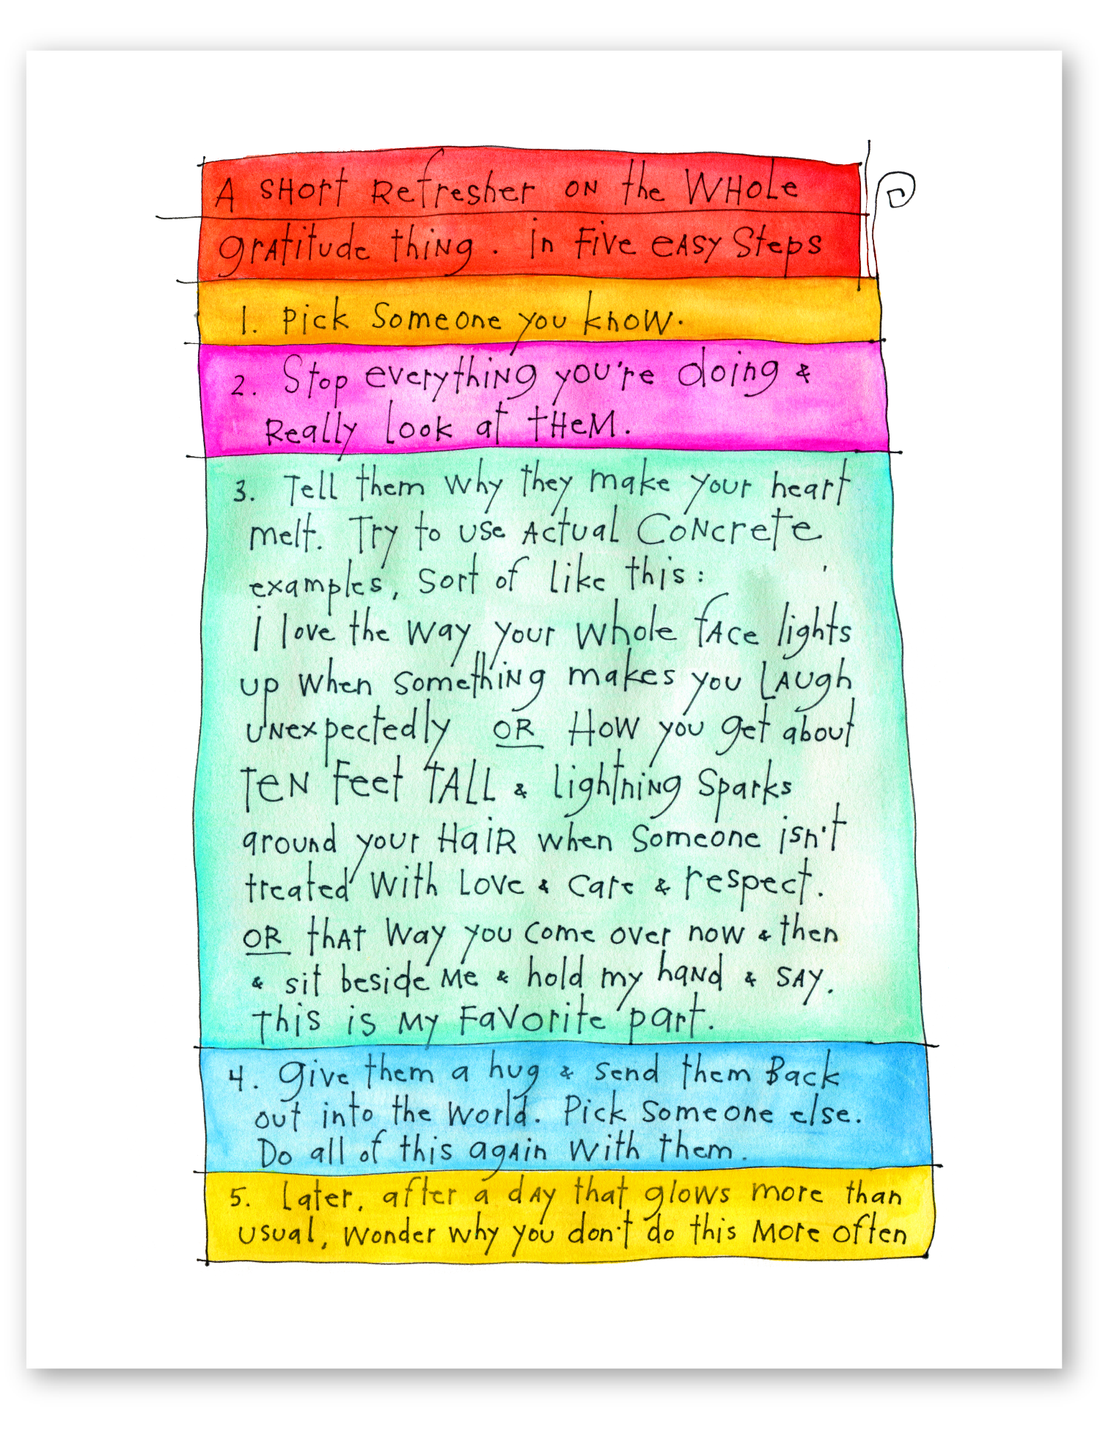 A SHort Refresher ON the WHole
gratitude thing. in Five eASY Steps
1. Pick Someone you know.
2. Stop everything you're doing &
Really look at tHeM.
3. Tell them why they make your heart
melt. Try to use Actual CoNcrete
examples, Sort of like this:
i love the Way your Whole fAce lights
up when Something makes you LAugh
uNexpectedly OR How you get about
TeN Feet TALL & lightning Sparks
around your HaiR when Someone isn't
treated With Love & Care & respect.
OR thAt Way you Come over now & then
& sit beside Me & hold my haNd & SAY.
This is My FaVorite part.
4. Give them a hug & Send them Back
out into the World. Pick Someone else.
Do all of this agAin With them.
5. Later, after a dAY that glows more than
usual, Wonder why you don't do this More often